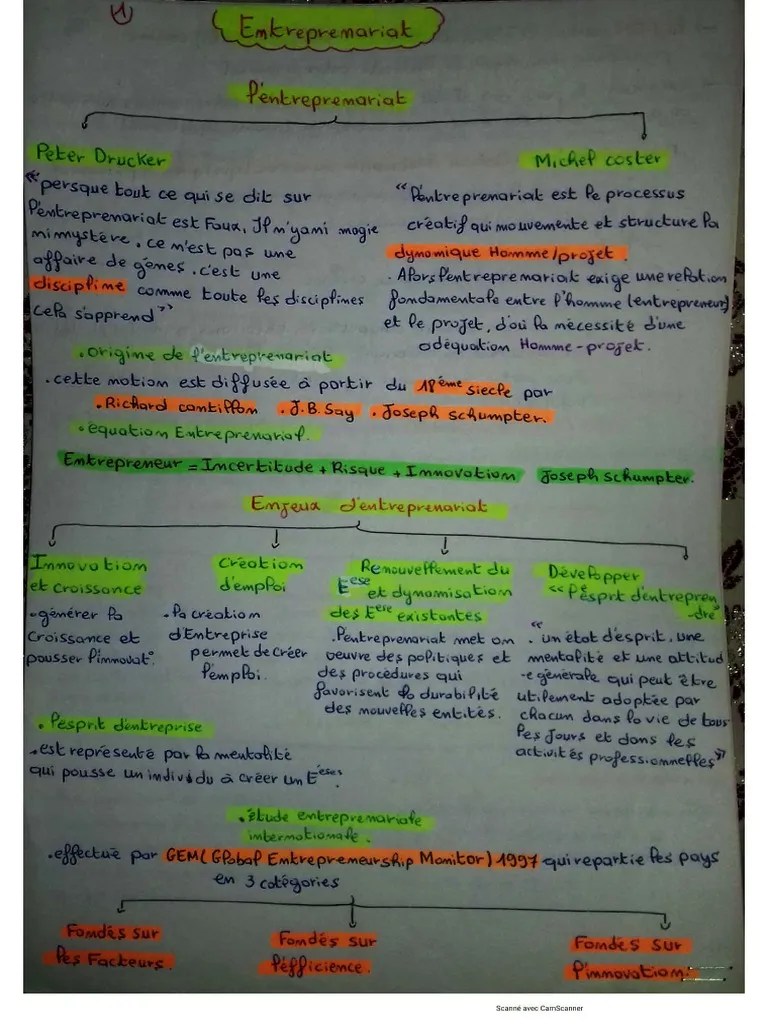 1
Entreprenariat
l'entreprenariat
Peter Drucker
"persque tout ce qui se dit sur
l'entreprenariat est Faux, Il n'y a ni magie
ni mystère, ce n'est pas une
affaire de gênes. c'est une
discipline comme toute les disciplines
cela s'apprend"
Michel coster
"l'entreprenariat est le processus
créatif qui mouvemente et structure la
dynamique Homme/projet.
. Alors l'entreprenariat exige une relation
fondamentale entre l'homme (entrepreneur)
et le projet, d'où la nécessité d'une
adéquation Homme-projet.
. origine de l'entreprenariat
. cette notion est diffusée à partir du 18ème siecle par
. Richard cantillon . J.B.Say . Joseph schumpter.
. équation Entreprenariat.
Entrepreneur = Incertitude + Risque + Innovation Joseph schumpter.
Enjeux d'entreprenariat
Innovation
et croissance
. générer la
croissance et
pousser l'innovat°
Création
d'emploi
. la création
d'Entreprise
permet de créer
l'emploi.
Renouvellement du
Eese et dynamisation
des Eese existantes
. l'entreprenariat met en
oeuvre des politiques et
des procédures qui
favorisent la durabilité
des nouvelles entités.
Développer
"l'esprit d'entrepren
-dre"
" . un état d'esprit, une
mentalité et une attitud
-e générale qui peut être
utilement adoptée par
chacun dans la vie de tous
les jours et dans les
activités professionnelles"
. l'esprit d'entreprise
. est représenté par la mentalité
qui pousse un individu à créer un Eese
. étude entreprenariale
internationale.
. effectué par GEM (Global Entrepreneurship Monitor) 1997 qui repartie les pays
en 3 catégories
Fondés sur
les Facteurs.
Fondés sur
l'éfficience.
Fondés sur
l'innovation.
Scanné avec CamScanner